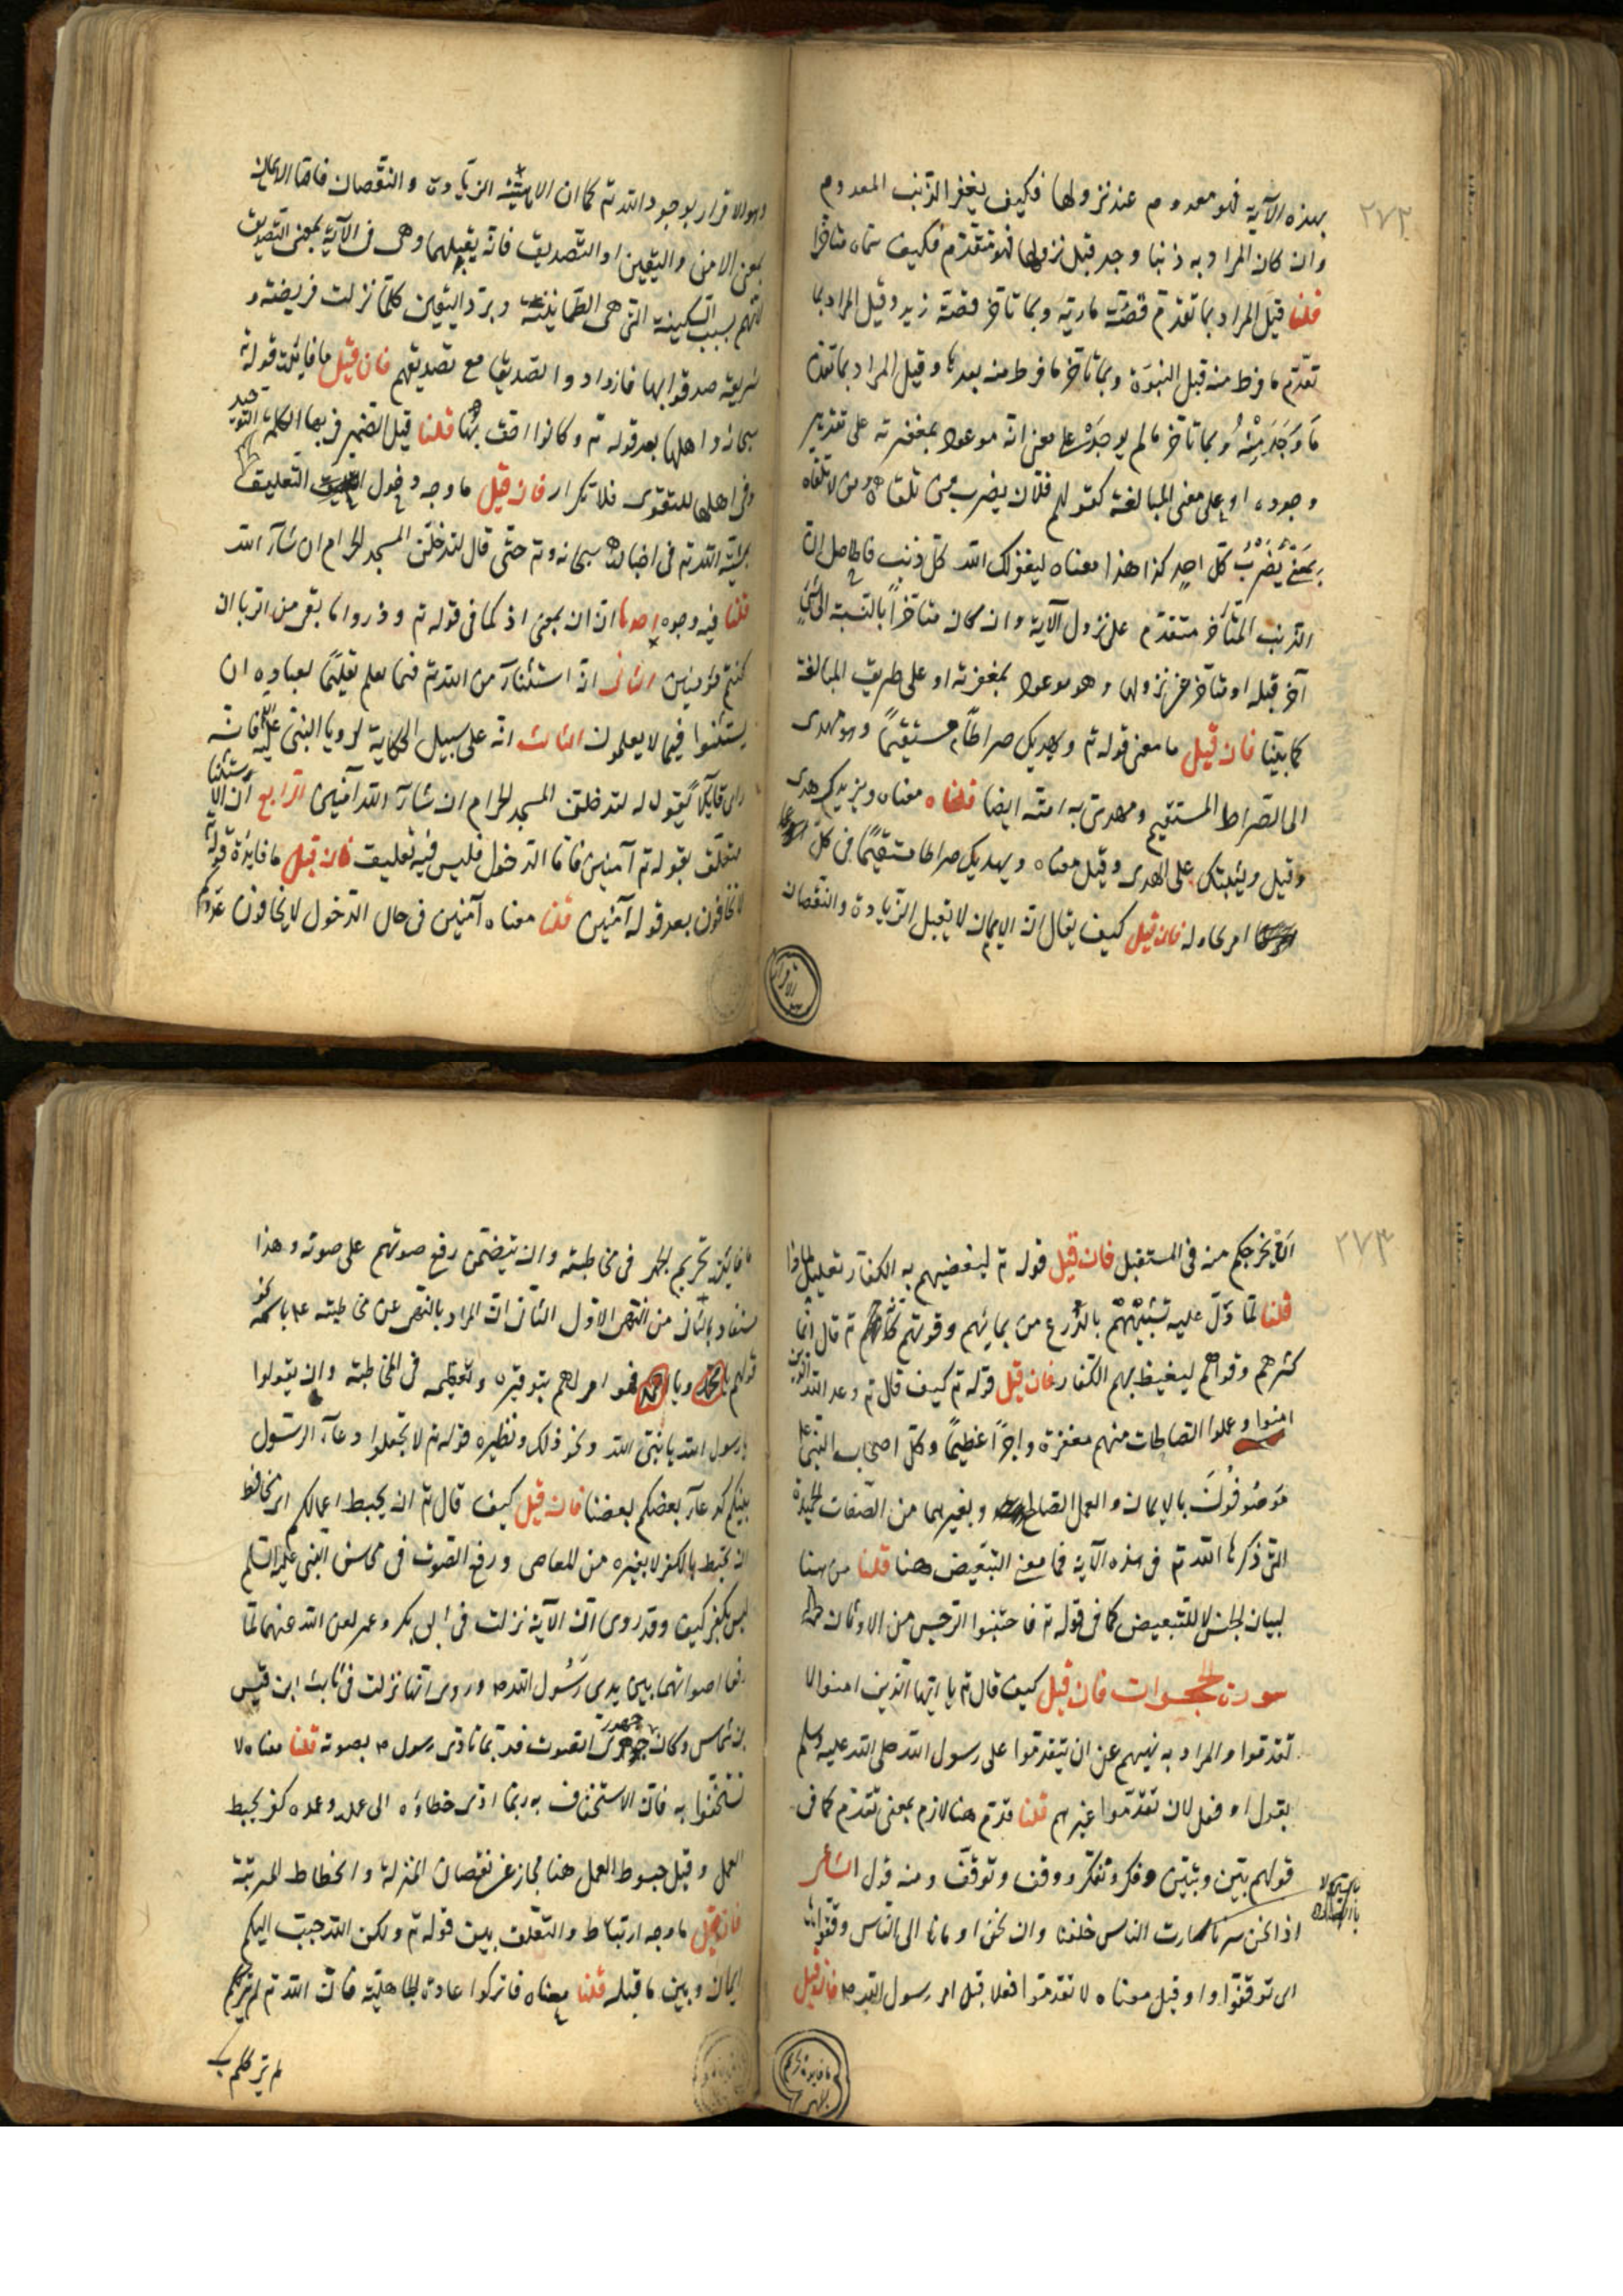 ٢٧٢
بهذه الآية فهو معدوم عند نزولها فكيف يغفر الذنب المعدوم
وان كان المراد به ذنبا وجد قبل نزولها فهو متقدم فكيف سماه متأخرا
قلنا قيل المراد بما تقدم قصة مارية وبما تأخر قصة زيد وقيل المراد بما
تقدم ما فرط منه قبل النبوة وبما تأخر ما فرط منه بعدها وقيل المراد بما تقدم
ما وجد منه وبما تأخر ما لم يوجد على معنى انه موعود بمغفرته على تقدير
وجوده او على معنى المبالغة كقولهم فلان يضرب من تلقاه ومن لا تلقاه
بمعنى يضرب كل احد كذا هذا معناه ليغفر لك الله كل ذنب فالحاصل ان
الذنب المتأخر متقدم على نزول الآية وان كان متأخرا بالنسبة الى شئ
آخر قبله او متأخر عن نزولها وهو موعود بمغفرته او على طريق المبالغة
كما بينا فان قيل ما معنى قوله تع ويهديك صراطا مستقيما وهو مهدى
الى الصراط المستقيم ومهدى به امته ايضا قلنا معناه ويزيدك هدى
وقيل ويثبتك على الهدى وقيل معناه ويهديك صراطا مستقيما فى كل
امر تحاوله فان قيل كيف يقال ان الايمان لا يقبل الزيادة والنقصان
وهو الاقرار بوجود الله تع كما ان الالهية الزيادة والنقصان فاما الايمان
بمعنى الامن واليقين او التصديق فانه يقبلهما وهى فى الآية بمعنى التصديق
لانهم بسبب السكينة التى هى الطمأنينة وبرد اليقين كلما نزلت فريضة و
شريعة صدقوا بها فازدادوا تصديقا مع تصديقهم فان قيل ما فائدة قوله
سبحانه واهلها بعد قوله تع وكانوا احق بها قلنا قيل الضمير فى بها لكلمة التوحيد
وفى اهلها للتقوى فلا تكرار فان قيل ما وجه دخول التعليق
بمشية الله تع فى اخباره سبحانه وتع حتى قال لتدخلن المسجد الحرام ان شآء الله
قلنا فيه وجوه احدها ان ان بمعنى اذ كما فى قوله تع وذروا ما بقى من الربا ان
كنتم مؤمنين الثانى انه استثنآء من الله تع فيما يعلم تعليما لعباده ان
يستثنوا فيما لا يعلمون الثالث انه على سبيل الحكاية لرويا النبى عليه فانه
راى قايلا يقول له لتدخلن المسجد الحرام ان شآء الله آمنين الرابع ان الاستثنا
متعلق بقوله تع آمنين فاما الدخول فليس فيه تعليق فان قيل ما فايدة قوله تع
لا تخافون بعد قوله آمنين قلنا معناه آمنين فى حال الدخول لا تخافون عدوكم
٢٧٣
ان يخرجكم منه فى المستقبل فان قيل قوله تع ليغيظ بهم الكفار تعليل لماذا
قلنا لما دل عليه تشبيههم بالزرع من نمائهم وقوتهم كانه تع قال انما
كثرهم وقواهم ليغيظ بهم الكفار فان قيل قوله تع كيف قال تع وعد الله الذين
امنوا وعملوا الصالحات منهم مغفرة واجرا عظيما وكل اصحاب النبى عم
موصوفون بالايمان والعمل الصالح وبغيرهما من الصفات الحميدة
التى ذكرها الله تع فى هذه الآية فما معنى التبعيض هنا قلنا من هنا
لبيان الجنس لا للتبعيض كما فى قوله تع فاجتنبوا الرجس من الاوثان
سورة الحجرات فان قيل كيف قال تع يا ايها الذين امنوا لا
تقدموا والمراد به نهيهم عن ان يتقدموا على رسول الله صلى الله عليه وسلم
بقول او فعل لا ان تقدموا غيرهم قلنا قدم هنا لازم بمعنى تقدم كما فى
قولهم بين وتبين وفكر وتفكر ووقف وتوقف ومنه قول الشاعر
اذا نحن سرنا سارت الناس خلفنا وان نحن اومأنا الى الناس وقفوا
اى توقفوا وقيل معناه لا تقدموا فعلا قبل امر رسول الله ص فان قيل
ما فائدة تحريم الجهر فى مخاطبته وان يتضمن رفع صوتهم على صوته وهذا
مستفاد من النهى الاول الثانى ان المراد بالنهى عن مخاطبته عم باسمه نحو
قولهم يا محمد ويا احمد فهو امر لهم بتوقيره وتعظيمه فى المخاطبة وان يقولوا
يا رسول الله يا نبى الله ونحو ذلك ونظيره قوله تع لا تجعلوا دعآء الرسول
بينكم كدعآء بعضكم بعضا فان قيل كيف قال تع ان تحبط اعمالكم اى مخافة
ان تحبط بالكفر لا بغيره من المعاصى ورفع الصوت فى مجلس النبى عليه السلم
ليس بكفر كيف وقد روى ان الآية نزلت فى ابى بكر وعمر لما
رفعا اصواتهما بين يدى رسول الله ص وروى انها نزلت فى ثابت ابن قيس
بن شماس وكان جهورى الصوت فربما تأذى رسول ص بصوته قلنا معناه لا
تستخفوا به فان الاستخفاف به ربما ادى خطاؤه الى عمده وعمده كفر يحبط
العمل وقيل حبوط العمل هنا مجاز عن نقصان المنزلة وانحطاط المرتبة
فان قيل ما وجه ارتباط والتعلق بين قوله تع ولكن الله حبب اليكم
الايمان وبين ما قبله قلنا معناه فاتركوا عادة الجاهلية فان الله تع لم يترككم
لم يترككم